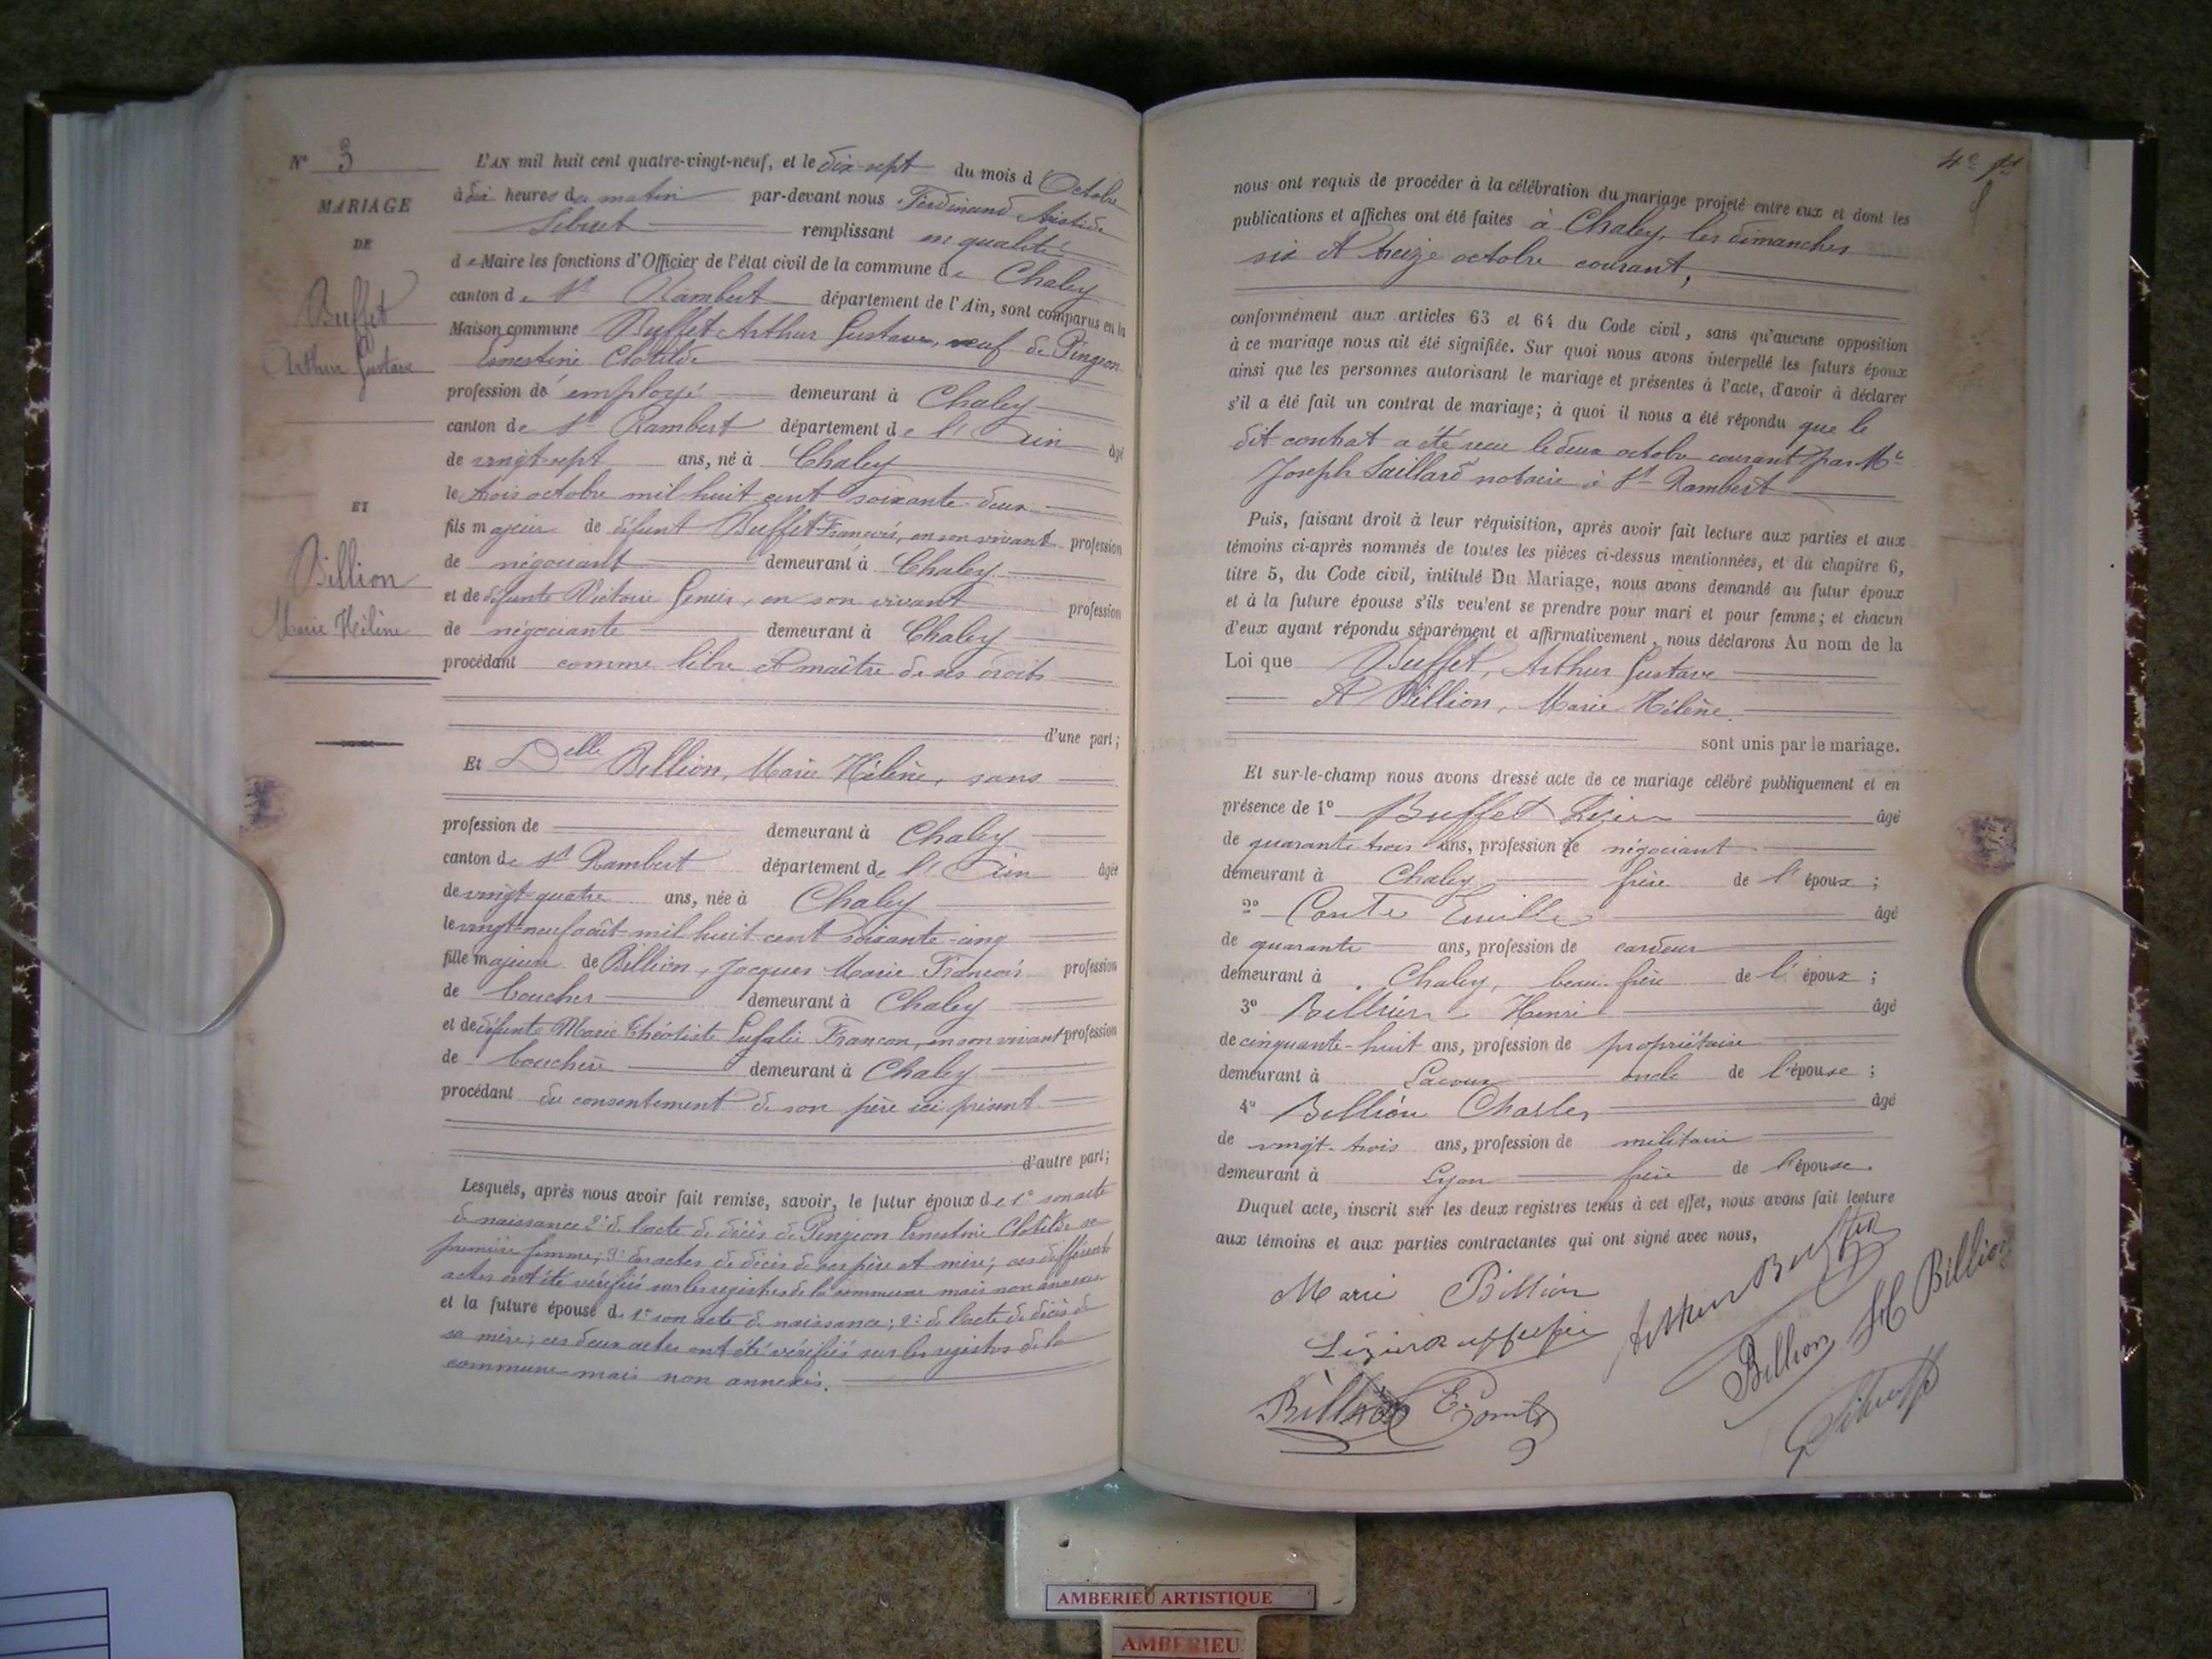 N° 3
MARIAGE
DE
Buffet
Arthur Gustave
ET
Billion
Marie Hélène
L'AN mil huit cent quatre-vingt-neuf, et le dix-sept du mois d'Octobre
à dix heures du matin par-devant nous Ferdinand Aristide
remplissant en qualité
de Maire les fonctions d'Officier de l'état civil de la commune de Chaley
canton de St Rambert département de l'Ain, sont comparus en la
Maison commune Buffet Arthur Gustave, veuf de Pingeon
Ernestine Clotilde
profession d' employé demeurant à Chaley
canton de St Rambert département de l'Ain âgé
de vingt-sept ans, né à Chaley
le trois octobre mil huit cent soixante-deux
fils majeur de défunt Buffet François, en son vivant profession
de négociant demeurant à Chaley
et de défunte Victoire, en son vivant profession
de négociante demeurant à Chaley
procédant comme libre et maître de ses droits
d'une part;
Et Delle Billion, Marie Hélène, sans
profession de demeurant à Chaley
canton de St Rambert département de l'Ain âgée
de vingt-quatre ans, née à Chaley
le vingt-neuf août mil huit cent soixante-cinq
fille majeure de Billion, Jacques Marie François profession
de boucher demeurant à Chaley
et de défunte Marie Théotiste Françon, en son vivant profession
de bouchère demeurant à Chaley
procédant du consentement de son père ici présent
d'autre part;
Lesquels, après nous avoir fait remise, savoir, le futur époux de 1° son acte
de naissance 2° de l'acte de décès de Pingeon Ernestine Clotilde sa
première femme; 3° des actes de décès de ses père et mère; ces différents
actes ont été vérifiés sur les registres de la commune mais non annexés
et la future épouse d. 1° son acte de naissance; 2° de l'acte de décès de
sa mère; ces deux actes ont été vérifiés sur les registres de la
commune mais non annexés.
nous ont requis de procéder à la célébration du mariage projeté entre eux et dont les
publications et affiches ont été faites à Chaley, les dimanches
six et treize octobre courant,
conformément aux articles 63 et 64 du Code civil, sans qu'aucune opposition
à ce mariage nous ait été signifiée. Sur quoi nous avons interpellé les futurs époux
ainsi que les personnes autorisant le mariage et présentes à l'acte, d'avoir à déclarer
s'il a été fait un contrat de mariage; à quoi il nous a été répondu que le
dit contrat a été reçu le deux octobre courant par Me
Joseph Saillard notaire à St Rambert
Puis, faisant droit à leur réquisition, après avoir fait lecture aux parties et aux
témoins ci-après nommés de toutes les pièces ci-dessus mentionnées, et du chapitre 6,
titre 5, du Code civil, intitulé Du Mariage, nous avons demandé au futur époux
et à la future épouse s'ils veulent se prendre pour mari et pour femme; et chacun
d'eux ayant répondu séparément et affirmativement, nous déclarons Au nom de la
Loi que Buffet, Arthur Gustave
Et Billion, Marie Hélène.
sont unis par le mariage.
Et sur-le-champ nous avons dressé acte de ce mariage célébré publiquement et en
présence de 1° Buffet Lizier âgé
de quarante trois ans, profession de négociant
demeurant à Chaley frère de l'époux;
2° Conte Emille âgé
de quarante ans, profession de cardeur
demeurant à Chaley, beau-frère de l'époux;
3° Billion Henri âgé
de cinquante-huit ans, profession de propriétaire
demeurant à Lacoux oncle de l'épouse;
4° Billion Charles âgé
de vingt-trois ans, profession de militaire
demeurant à Lyon frère de l'épouse.
Duquel acte, inscrit sur les deux registres tenus à cet effet, nous avons fait lecture
aux témoins et aux parties contractantes qui ont signé avec nous,
Marie Billion
Arthur Buffet
Billion
H Billion
AMBERIEU ARTISTIQUE
AMBERIEU